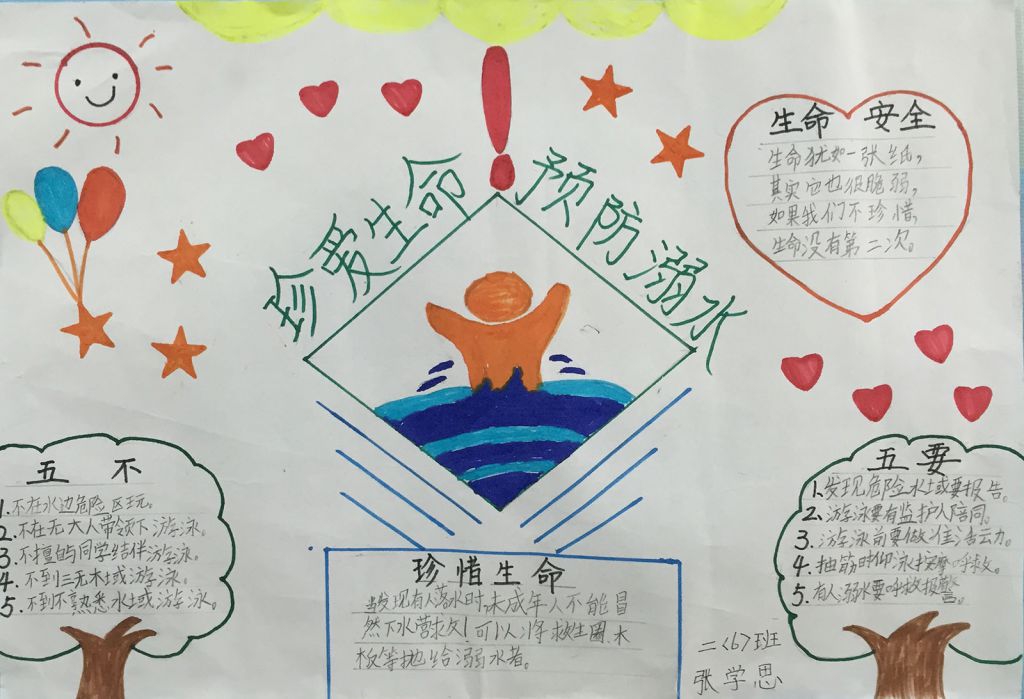 珍爱生命
预防溺水
生命 安全
生命犹如一张纸，
其实它也很脆弱，
如果我们不珍惜，
生命没有第二次。
五 不
1.不在水边危险区玩。
2.不在无大人带领下游泳。
3.不擅自与同学结伴游泳。
4.不到三无水域游泳。
5.不到不熟悉水域游泳。
五 要
1.发现危险水域要报告。
2.游泳要有监护人陪同。
3.游泳前要做准活动。
4.抽筋时仰泳按摩呼救。
5.有人溺水要呼救报警。
珍惜生命
当发现有人落水时,未成年人不能冒
然下水营救,可以将救生圈、木
板等抛给溺水者。
二<6>班
张学思